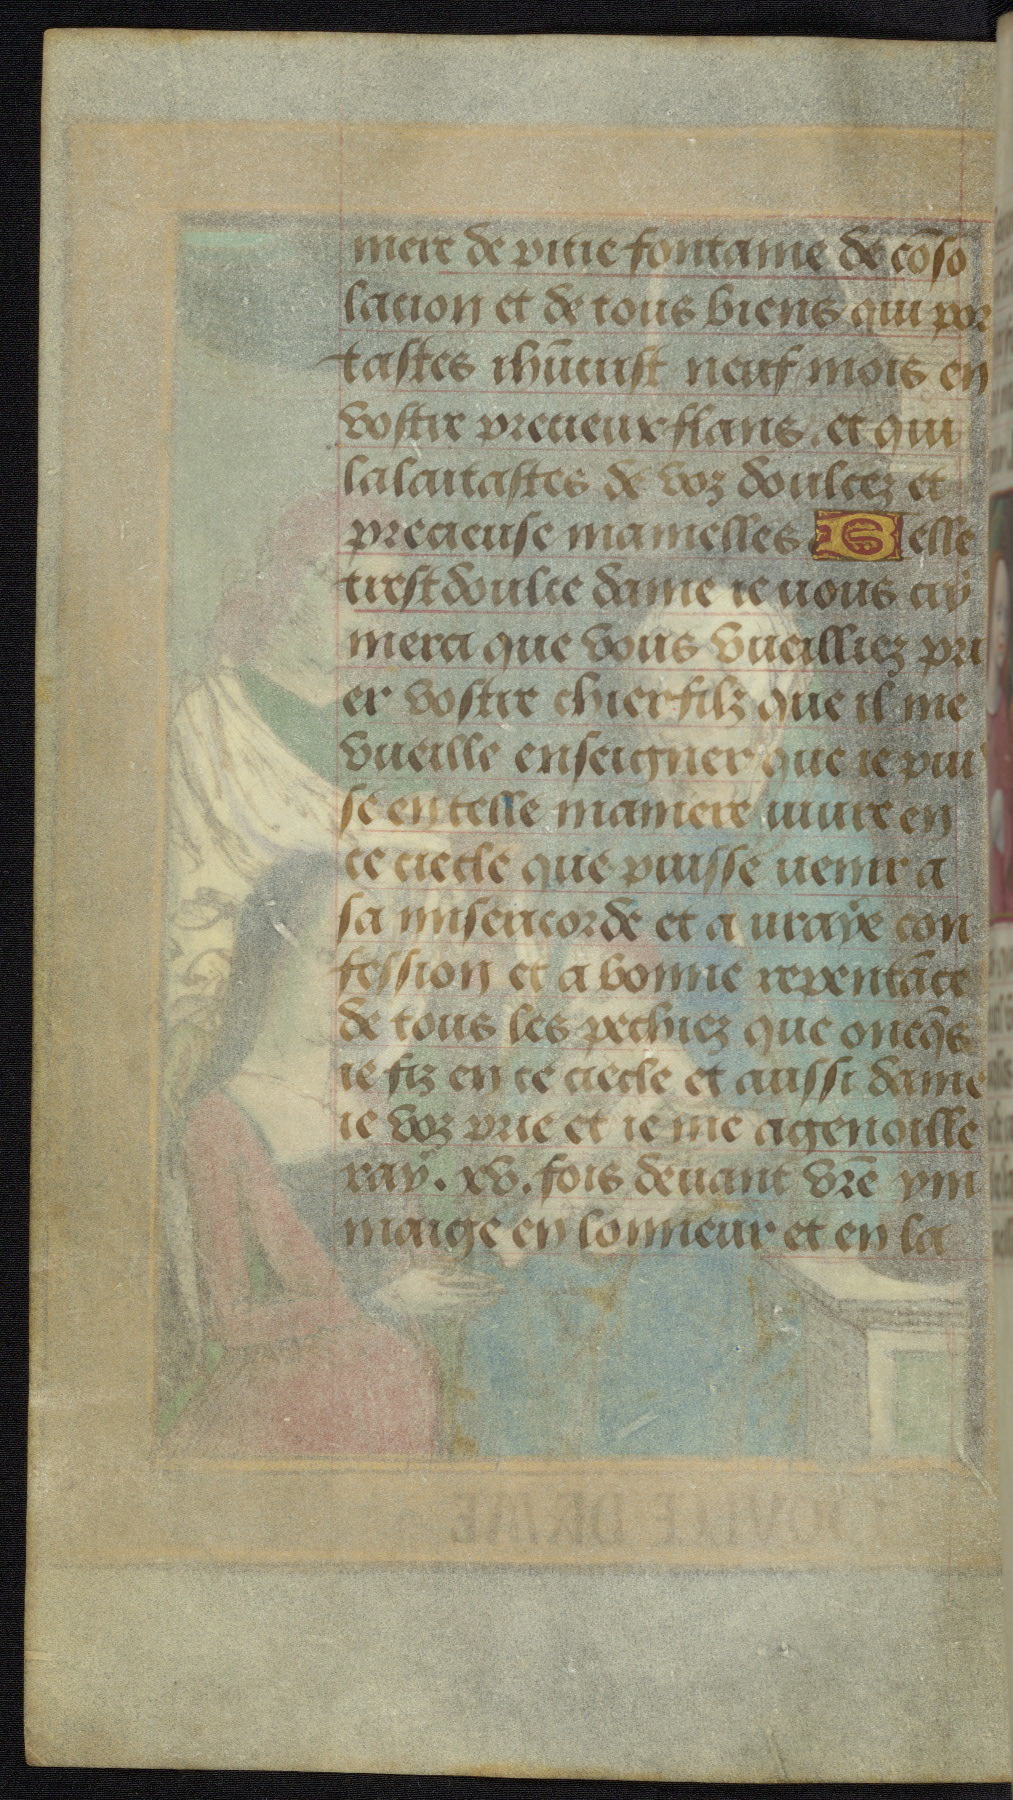 mere de pitie fontaine de cōso
lacion et de tous biens qui por
tastes ihūcrist neuf mois en
vostre precieux flans. et qui
lalaitastes de voz doulcez et
precieuse mamelles Belle
trestdoulce dame ie vous cry
merci que vous vueilliez pri
er vostre chier filz que il me
vueille enseigner que ie puis
se en telle maniere vivre en
ce ciecle que puisse venir a
sa misericorde et a vraye con
fession et a bonne repentāce
de tous les pechiez que oncq̄s
ie fiz en ce ciecle et aussi dame
ie voz prie et ie me agenoille
ray. xv. fois devant vr̄e ym
maige en lonneur et en la
DOVLCE DAME